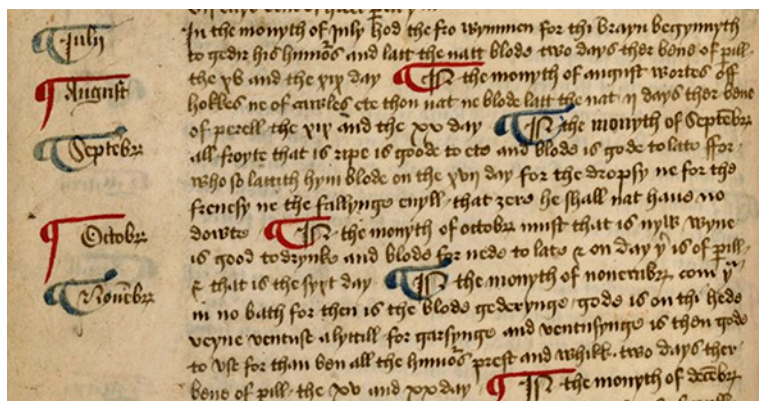 July
In the monyth of July hod the fro wymmen for thi brayn begynnyth
to gedir his humors and latt the natt blode two days ther bene of pill
the xv and the xix day In the monyth of august wortes off
August
hokkes ne of curles ete thou nat ne blode latt the nat ij days ther bene
of perell the xix and the xx day In the monyth of Septebr
Septebr
all froyte that is ripe is goode to ete and blode is gode to late ffor
who so lattith hym blode on the xvij day for the dropsy ne for the
frenesy ne the fallynge evyll that zere he shall nat haue no
dowte In the monyth of octobr must that is nyw wyne
Octobr
is good to drynke and blode for nede to late & on day yt is of pill
& that is the syxt day In the monyth of nouembr com yu
Nouebr
in no bath for then is the blode gederynge gode is on thi hede
veyne ventuse a lytill for garsynge and ventusynge is then gode
to vse for than ben all the humors prest and whikk two days ther
bene of pill the xv and xx day In the monyth of decebr